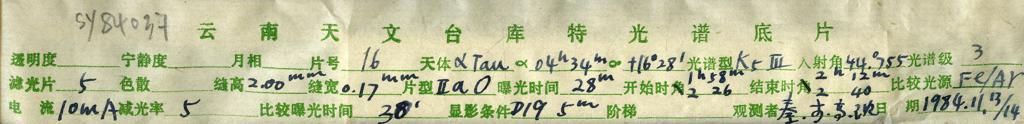 SY84037
云南天文台库特光谱底片
透明度 宁静度 月相 片号 16 天体 α Tau α 04ʰ34ᵐ δ +16°28′ 光谱型 K5 III 入射角 44.°755 光谱级 3
滤光片 5 色散 缝高 2.00ᵐᵐ 缝宽 0.17ᵐᵐ 片型 IIaO 曝光时间 28ᵐ 开始时角 1ʰ58ᵐ 2 26 结束时角 2ʰ12ᵐ 2 40 比较光源 Fe/Ar
电流 10mA 减光率 5 比较曝光时间 30ˢ 显影条件 D19 5ᵐ 阶梯 观测者 日期 1984.11.13/14